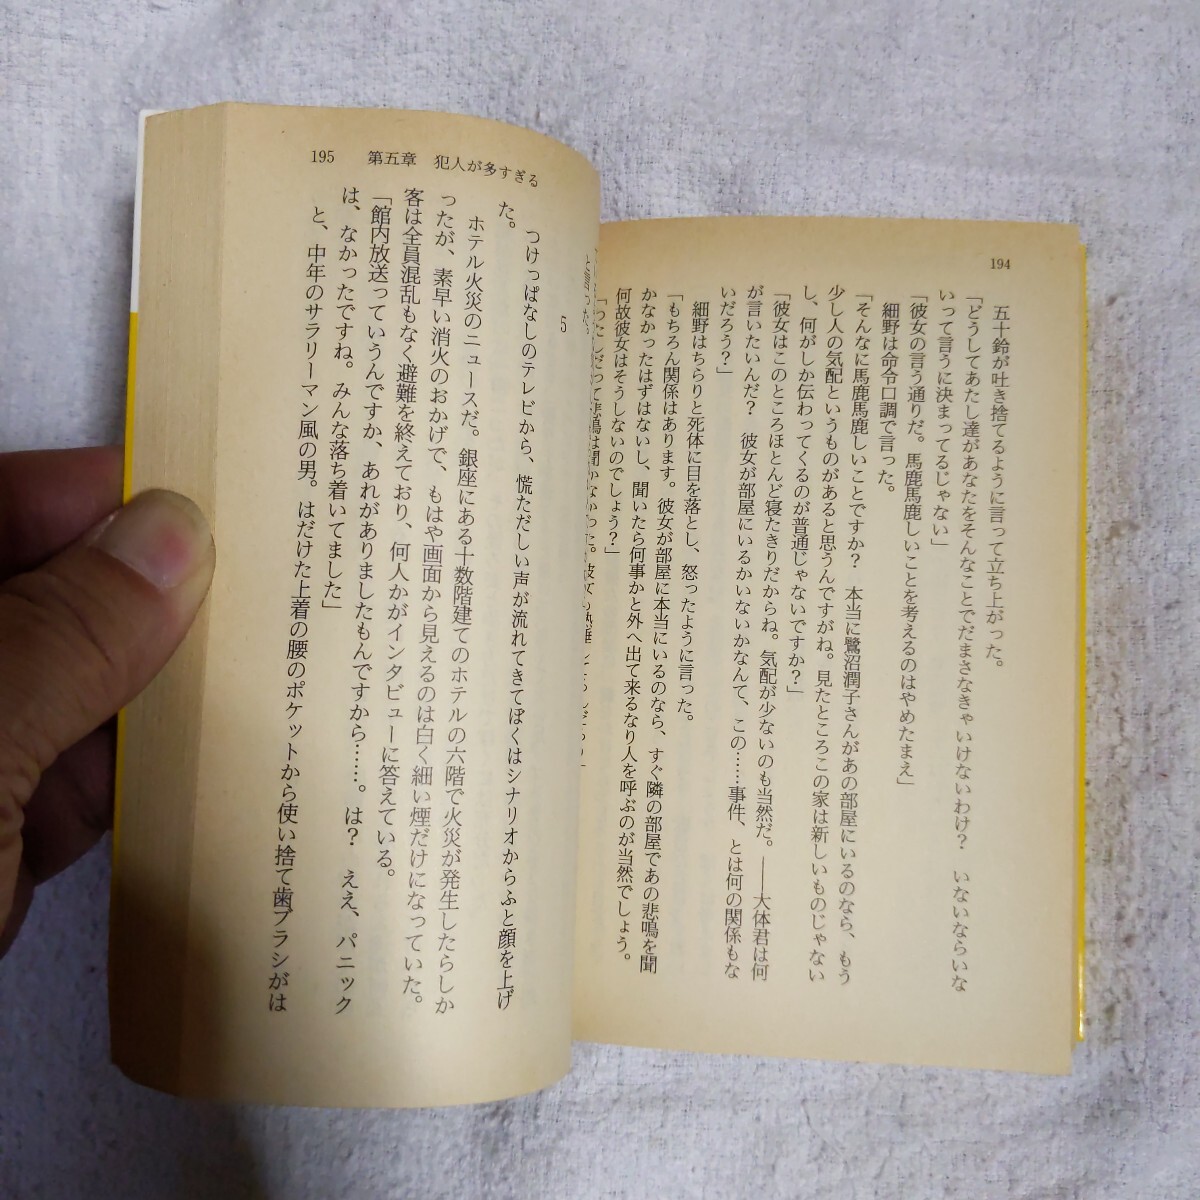 194
五十鈴が吐き捨てるように言って立ち上がった。
「どうしてあたし達があなたをそんなことでだまさなきゃいけないわけ？　いないならいな
いって言うに決まってるじゃない」
「彼女の言う通りだ。馬鹿馬鹿しいことを考えるのはやめたまえ」
細野は命令口調で言った。
「そんなに馬鹿馬鹿しいことですか？　本当に鷺沼潤子さんがあの部屋にいるのなら、もう
少し人の気配というものがあると思うんですがね。見たところこの家は新しいものじゃない
し、何がしか伝わってくるのが普通じゃないですか？」
「彼女はこのところほとんど寝たきりだからね。気配が少ないのも当然だ。――大体君は何
が言いたいんだ？　彼女が部屋にいるかいないかなんて、この……事件、とは何の関係もな
いだろう？」
細野はちらりと死体に目を落とし、怒ったように言った。
「もちろん関係はあります。彼女が部屋に本当にいるのなら、すぐ隣の部屋であの悲鳴を聞
かなかったはずはないし、聞いたら何事かと外へ出て来るなり人を呼ぶのが当然でしょう。
何故彼女はそうしないのでしょう？」
だって悲鳴は聞かなかった。彼女も
と言った。
195　第五章　犯人が多すぎる
5
つけっぱなしのテレビから、慌ただしい声が流れてきてぼくはシナリオからふと顔を上げ
た。
ホテル火災のニュースだ。銀座にある十数階建てのホテルの六階で火災が発生したらしか
ったが、素早い消火のおかげで、もはや画面から見えるのは白く細い煙だけになっていた。
客は全員混乱もなく避難を終えており、何人かがインタビューに答えている。
「館内放送っていうんですか、あれがありましたもんですから……。は？　ええ、パニック
は、なかったですね。みんな落ち着いてました」
と、中年のサラリーマン風の男。はだけた上着の腰のポケットから使い捨て歯ブラシがは